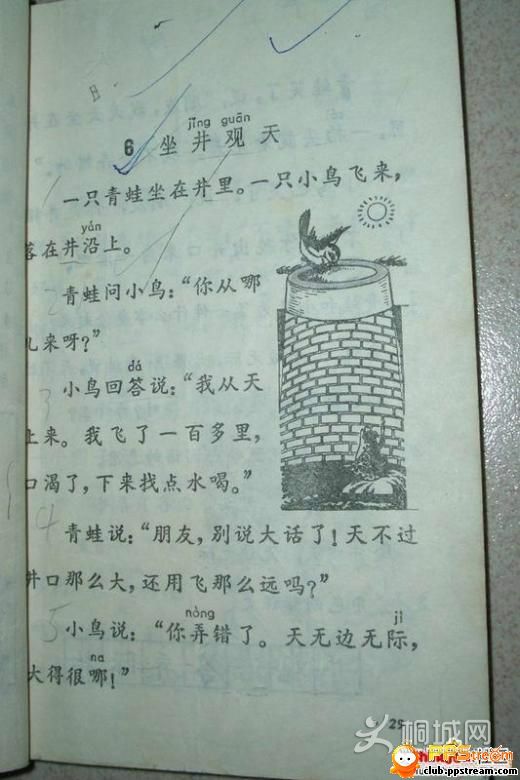 jǐng guān
6 坐井观天
一只青蛙坐在井里。一只小鸟飞来,
yán
落在井沿上。
青蛙问小鸟:“你从哪
儿来呀?”
dá
小鸟回答说:“我从天
上来。我飞了一百多里,
口渴了,下来找点水喝。”
青蛙说:“朋友,别说大话了!天不过
井口那么大,还用飞那么远吗?”
nòng jì
小鸟说:“你弄错了。天无边无际,
na
大得很哪!”
桐城网
club.ppstream.com